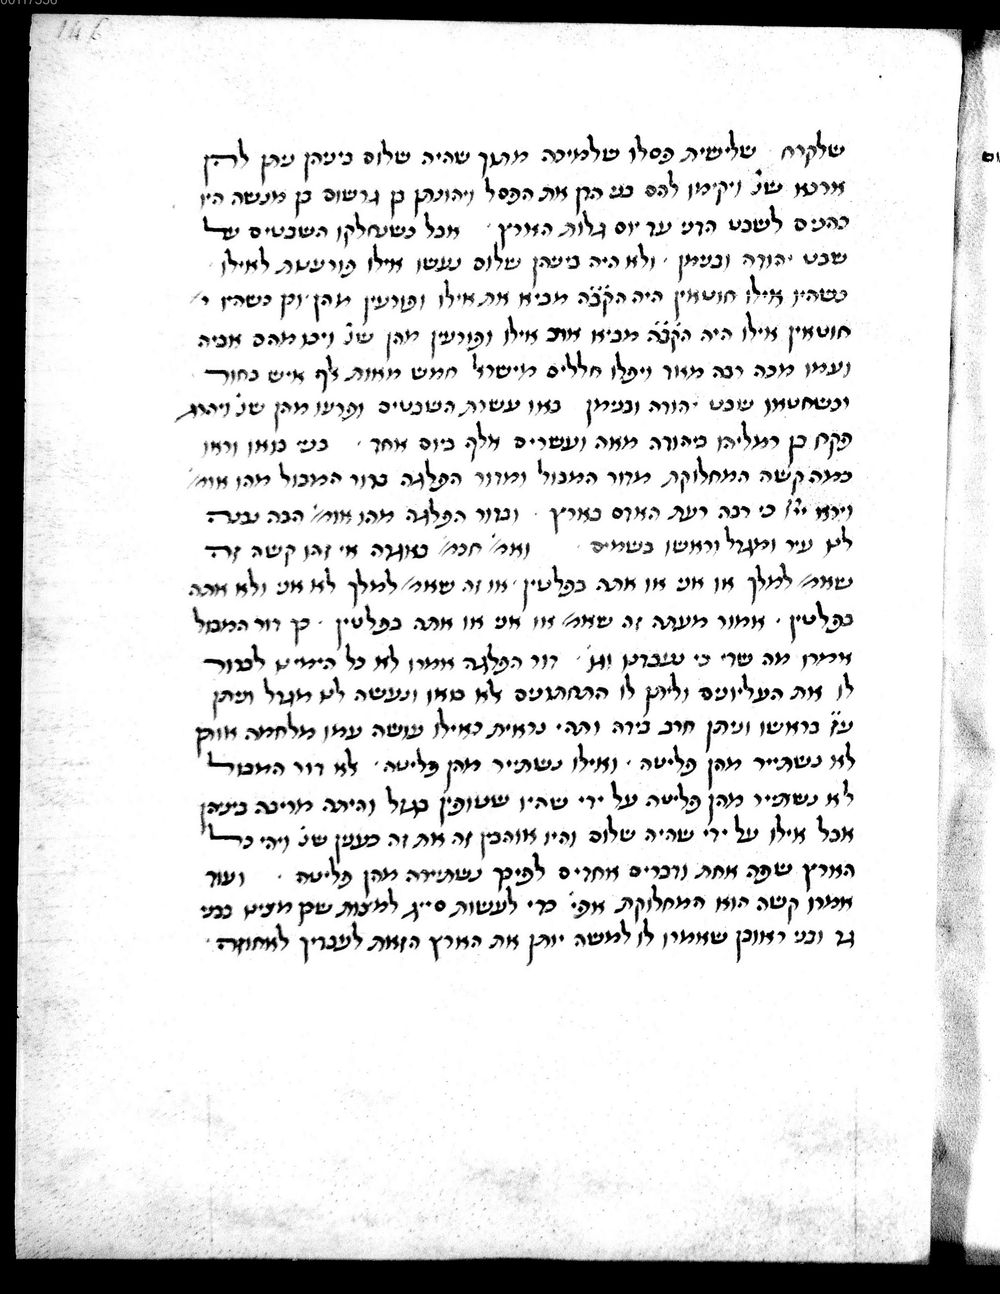 146
שלקרח שלישית פסלו שלמיכה מתוך שהיה שלום ביניהן נתן להן
ארכא שנ' ויקימו להם בני הדן את הפסל ויהונתן בן גרשום בן מנשה היו
כהנים לשבט הדני עד יום גלות הארץ אבל כשנחלקו השבטים על
שבט יהודה ובנימן ולא היה ביניהן שלום נעשו אילו פורענות לאילו
כשהיו אילו חוטאין היה הקב"ה מביא את אילו ופורעין מהן וכן כשהיו
חוטאין אילו היה הקב"ה מביא את אילו ופורעין מהן שנ' ויכו מהם אביה
ועמו מכה רבה מאוד ויפלו חללים מישראל חמש מאות אלף איש בחור
וכשחטאו שבט יהודה ובנימן באו עשרת השבטים ופרעו מהן שנ' ויהרוג
פקח בן רמליהו ביהודה מאה ועשרים אלף ביום אחד בני בואו וראו
כמה קשה המחלוקת מדור המבול ומדור הפלגה בדור המבול מהו אומ'
וירא ייי כי רבה רעת האדם בארץ ובדור הפלגה מהו אומ' הבה נבנה
לנו עיר ומגדל וראשו בשמים ואמ' חכמ' באגדה אי זהו קשה זה
שאמ' למלך או אני או אתה בפלטין או זה שאמ' למלך לא אני ולא אתה
בפלטין אמור מעתה זה שאמ' או אני או אתה בפלטין כך דור המבול
אמרו מה שדי כי נעבדנו וגו' דור הפלגה אמרו לא כל הימינו לבדור
לו את העליונים וליתן לו התחתונים אלא בואו ונעשה לנו מגדל וניתן
ע"ז בראשו וניתן חרב בידה ותהי נראית כאילו עושה עמו מלחמה אותן
לא נשתייר מהן פליטה ואילו נשתייר מהן פליטה אלא דור המבול
לא נשתייר מהן פליטה על ידי שהיו שטופין בגזל והיתה מריבה ביניהן
אבל אילו על ידי שהיה שלום והיו אוהבין זה את זה כענין שנ' ויהי כל
הארץ שפה אחת ודברים אחדים לפיכך נשתיירה מהן פליטה ועוד
אמרו קשה הוא המחלוקת אפי' כדי לעשות סייג למצות שכן מצינו בבני
גד ובני ראובן שאמרו לו למשה יותן את הארץ הזאת לעבדיך לאחוזה